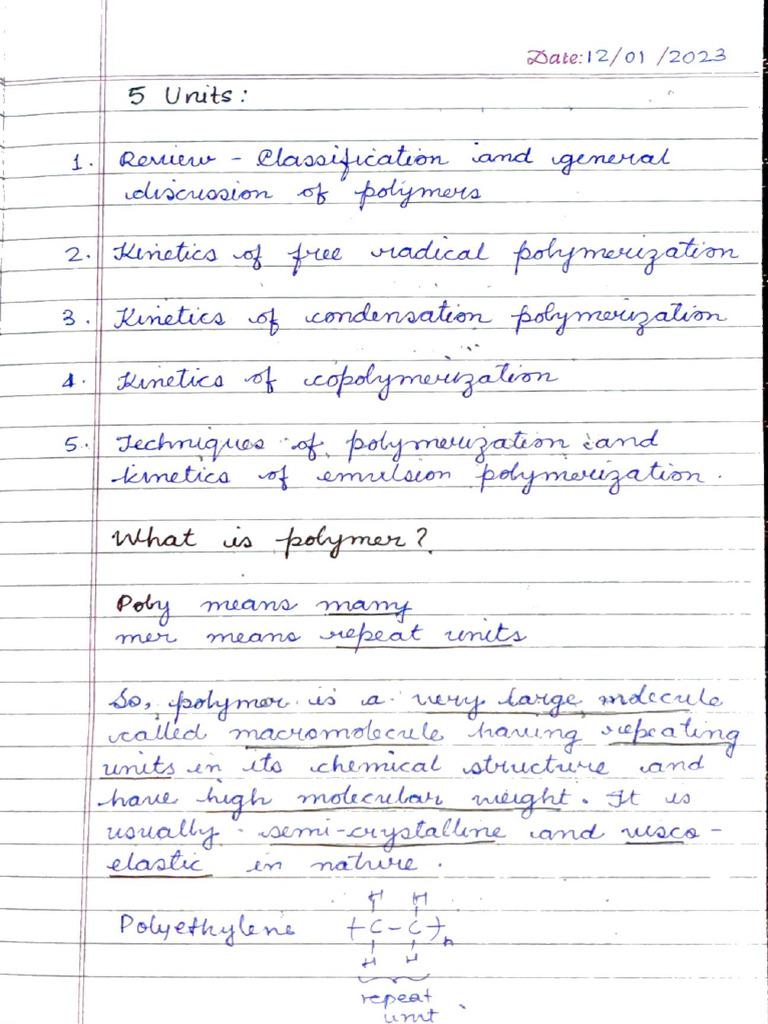 Date: 12/01/2023
5 Units:
1. Review - Classification and general
discussion of polymers
2. Kinetics of free radical polymerization
3. Kinetics of condensation polymerization
4. Kinetics of copolymerization
5. Techniques of polymerization and
kinetics of emulsion polymerization.
What is polymer?
Poly means many
mer means repeat units
So, polymer is a very large molecule
called macromolecule having repeating
units in its chemical structure and
have high molecular weight. It is
usually semi-crystalline and visco-
elastic in nature.
H H
Polyethylene +C-C+n
H H
repeat
unit